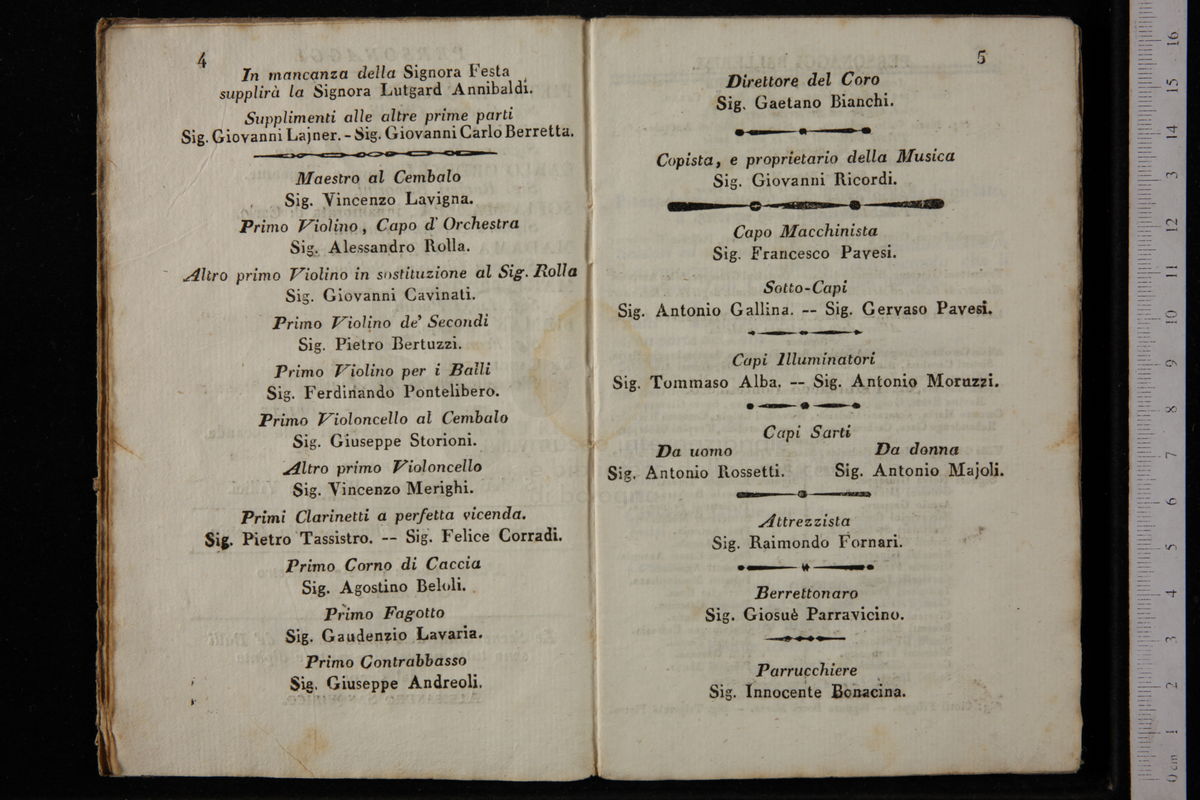 4
In mancanza della Signora Festa
supplirà la Signora Lutgard Annibaldi.
Supplimenti alle altre prime parti
Sig. Giovanni Lajner. - Sig. Giovanni Carlo Berretta.
Maestro al Cembalo
Sig. Vincenzo Lavigna.
Primo Violino, Capo d'Orchestra
Sig. Alessandro Rolla.
Altro primo Violino in sostituzione al Sig. Rolla
Sig. Giovanni Cavinati.
Primo Violino de' Secondi
Sig. Pietro Bertuzzi.
Primo Violino per i Balli
Sig. Ferdinando Pontelibero.
Primo Violoncello al Cembalo
Sig. Giuseppe Storioni.
Altro primo Violoncello
Sig. Vincenzo Merighi.
Primi Clarinetti a perfetta vicenda.
Sig. Pietro Tassistro. -- Sig. Felice Corradi.
Primo Corno di Caccia
Sig. Agostino Beloli.
Primo Fagotto
Sig. Gaudenzio Lavaria.
Primo Contrabbasso
Sig. Giuseppe Andreoli.
5
Direttore del Coro
Sig. Gaetano Bianchi.
Copista, e proprietario della Musica
Sig. Giovanni Ricordi.
Capo Macchinista
Sig. Francesco Pavesi.
Sotto-Capi
Sig. Antonio Gallina. -- Sig. Gervaso Pavesi.
Capi Illuminatori
Sig. Tommaso Alba. -- Sig. Antonio Moruzzi.
Capi Sarti
Da uomo Da donna
Sig. Antonio Rossetti. Sig. Antonio Majoli.
Attrezzista
Sig. Raimondo Fornari.
Berrettonaro
Sig. Giosuè Parravicino.
Parrucchiere
Sig. Innocente Bonacina.
0 cm 1 2 3 4 5 6 7 8 9 10 11 12 13 14 15 16